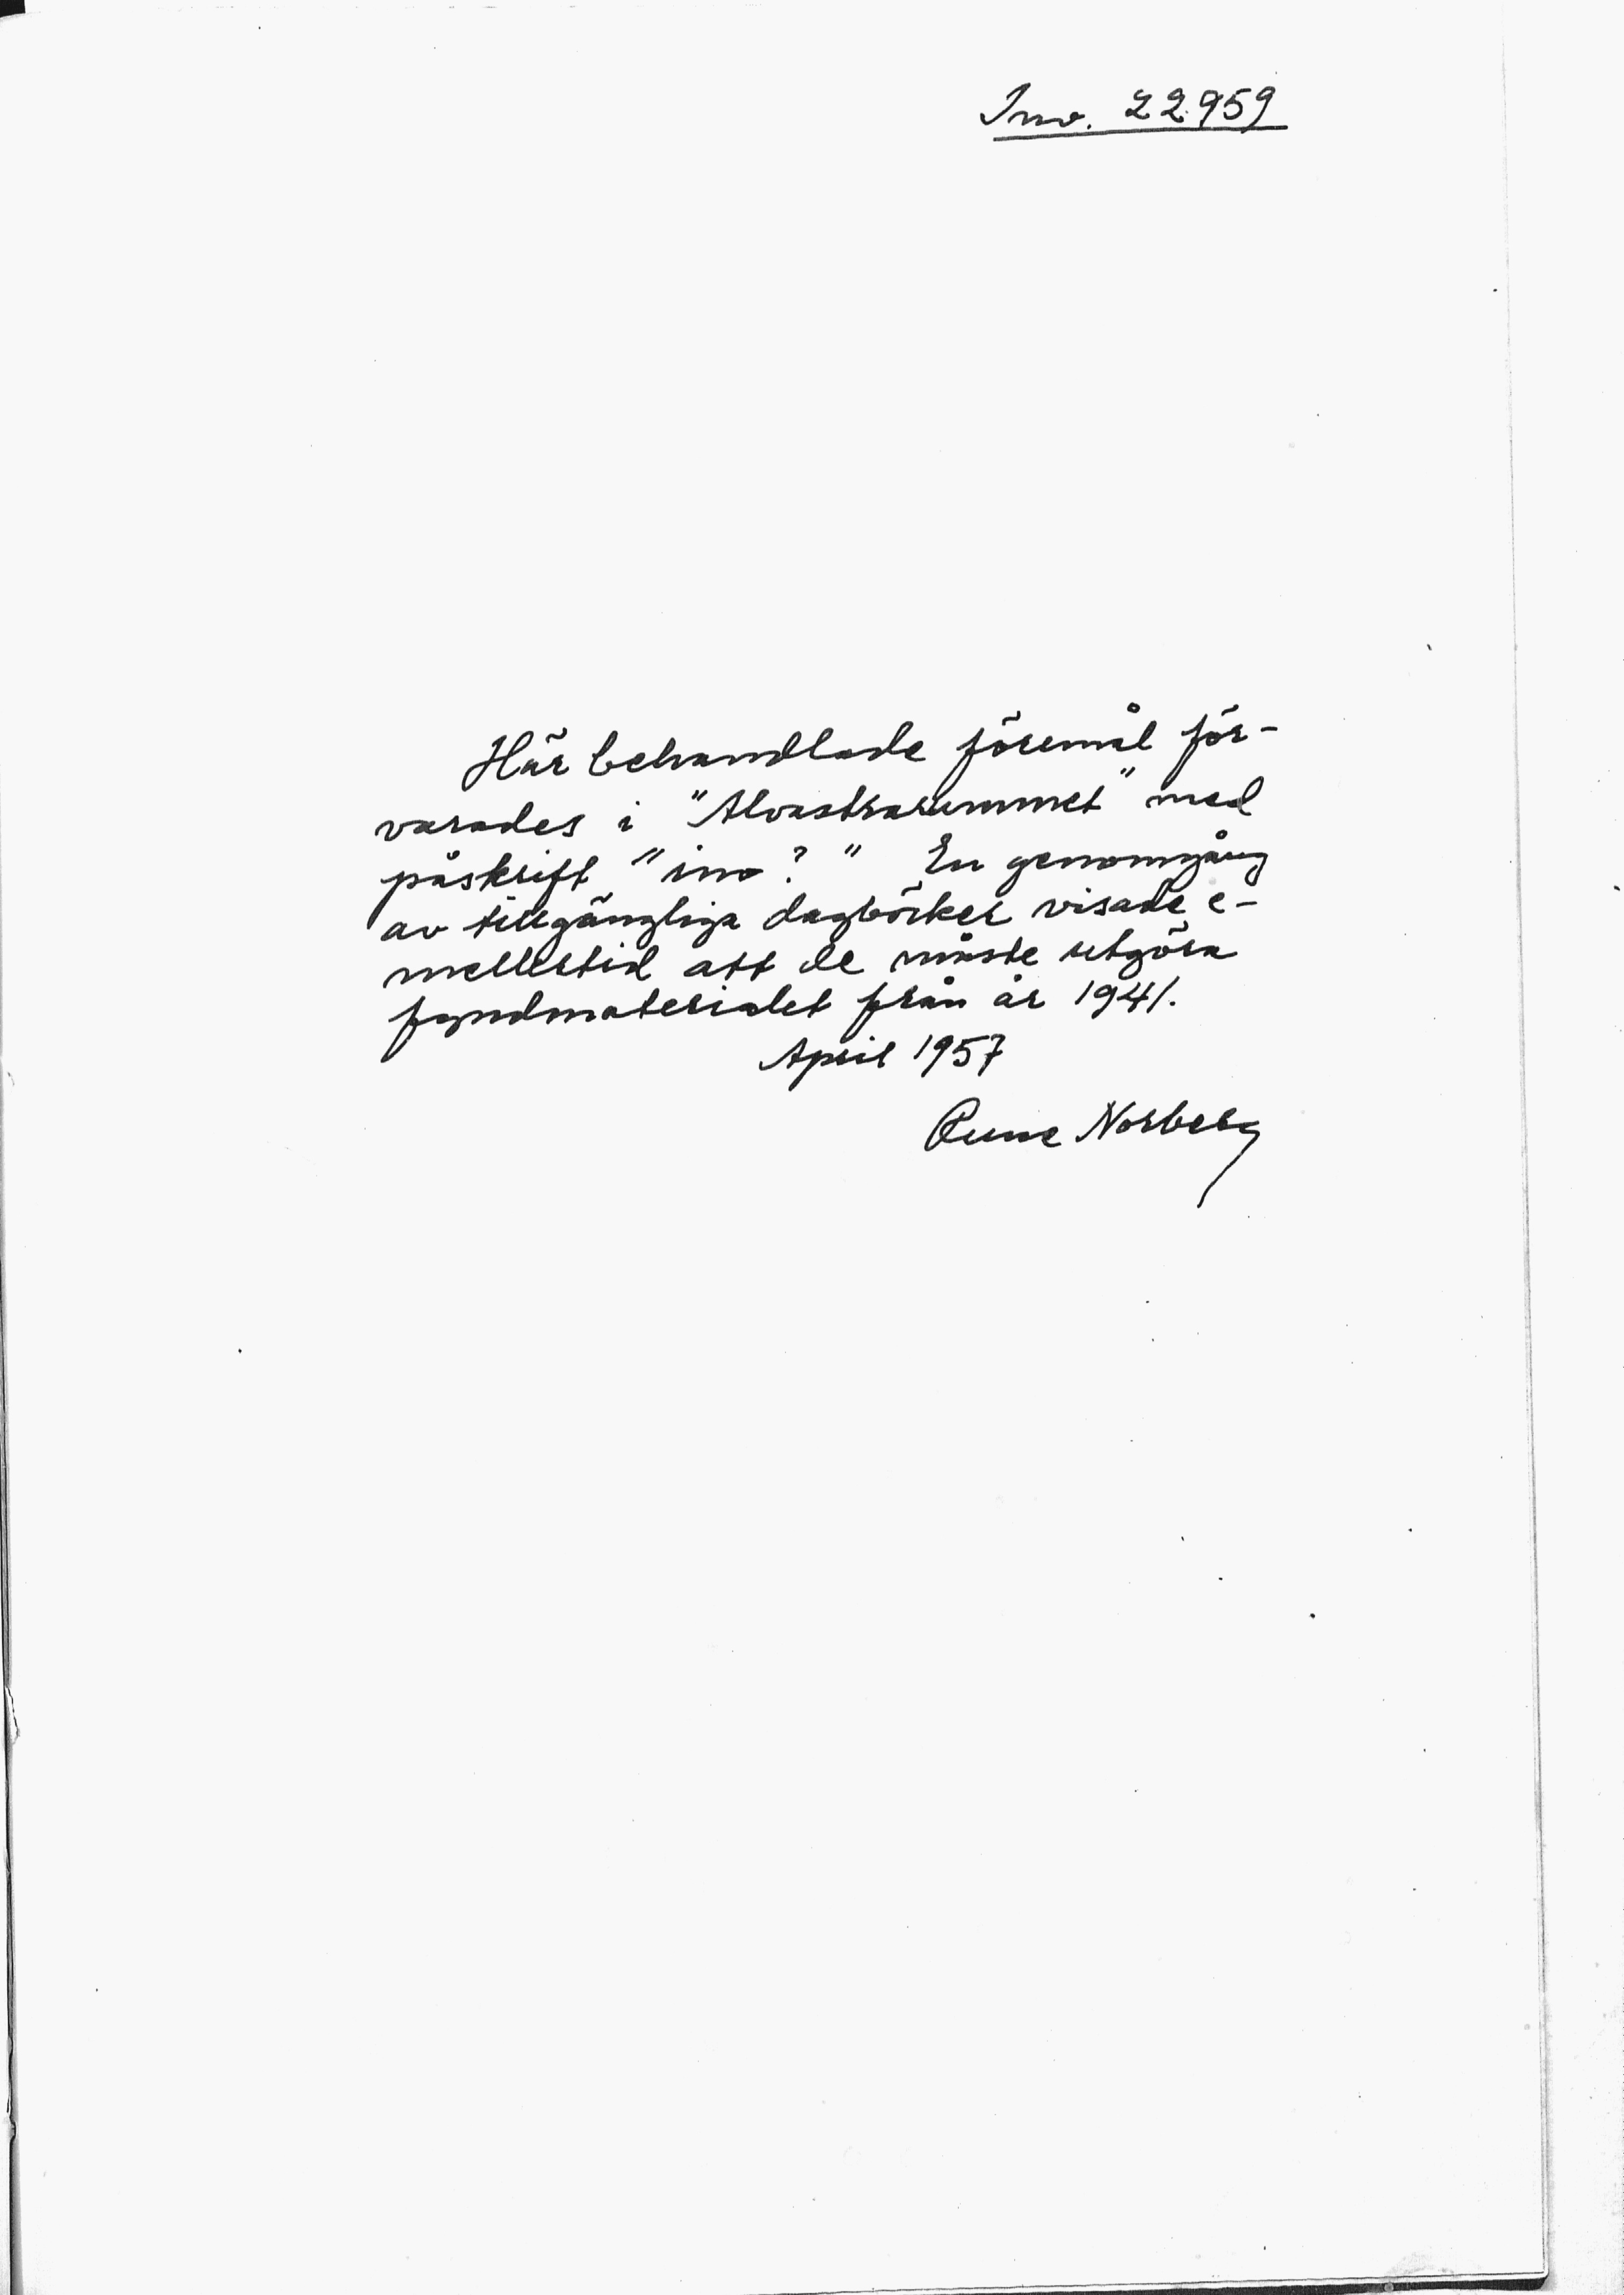 Inv. 22959
Här behandlade föremål för-
varades i "Alvastrarummet" med
påskrift "inv? " En genomgång
av tillgängliga dagböcker visade e-
mellertid att de måste utgöra
fyndmaterialet från år 1941.
April 1957
Rune Norberg